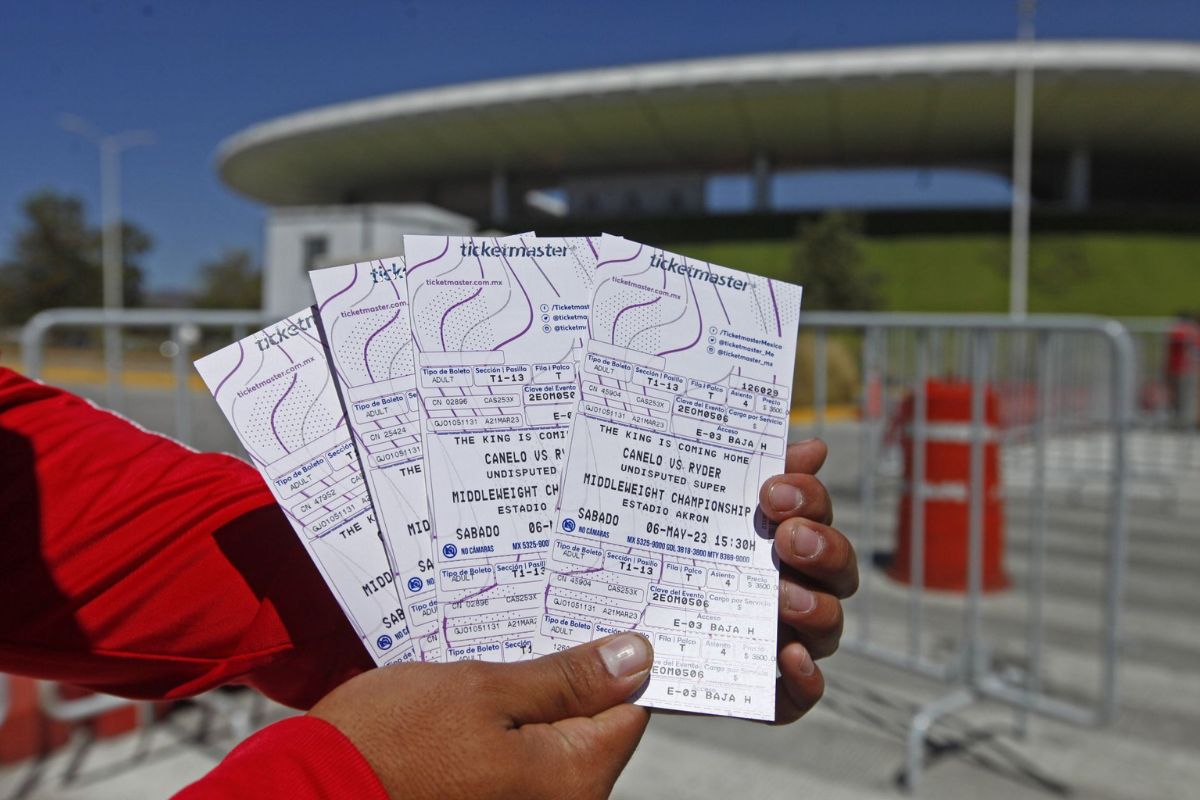 ticketmaster
ticketmaster.com.mx
Tipo de Boleto
ADULT
CN 47952
GJO1051131
THE K
MIDD
SABA
NO CÁMARAS
ticketmaster.com
Tipo de Boleto
ADULT
CN 25424
GJO1051131
THE
MID
SAB
ticketmaster
ticketmaster.com.mx
/Ticketma
@ticketma
@ticketm
Tipo de Boleto Sección | Pasillo Fila | Palco
ADULT T1-13 T
CN 02896 CAS253X Clave del Evento
2EOM050
GJO1051131 A21MAR23 E-0
THE KING IS COMI
CANELO VS. R
UNDISPUTED
MIDDLEWEIGHT CH
ESTADIO
SABADO 06-M
NO CÁMARAS MX 5325-9000
Tipo de Boleto Sección | Pasillo
ADULT T1-13
CN 02896 CAS253X
GJO1051131 A21MAR23
Tipo de Boleto Sección
ADULT T1
ticketmaster
ticketmaster.com.mx
/TicketmasterMexico
@Ticketmaster_Me
@ticketmaster_mx
126029
Tipo de Boleto Sección | Pasillo Fila | Palco Asiento Precio
ADULT T1-13 T 4 $ 3500
CN 45904 CAS253X Clave del Evento Cargo por Servicio
2EOM0506 $
GJO1051131 A21MAR23 Acceso
E-03 BAJA H
THE KING IS COMING HOME
CANELO VS. RYDER
UNDISPUTED SUPER
MIDDLEWEIGHT CHAMPIONSHIP
ESTADIO AKRON
SABADO 06-MAY-23 15:30H
NO CÁMARAS MX 5325-9000 GDL 3818-3800 MTY 8369-9000
Tipo de Boleto Sección | Pasillo Fila | Palco Asiento Precio
ADULT T1-13 T 4 $ 3500
CN 45904 CAS253X Clave del Evento Cargo por Servicio
2EOM0506 $
GJO1051131 A21MAR23 Acceso
E-03 BAJA H
Tipo de Boleto Fila | Palco Asiento Precio
ADULT T 4 $ 3500
Clave del Evento Cargo por Servicio
EOM0506 $
Acceso
E-03 BAJA H